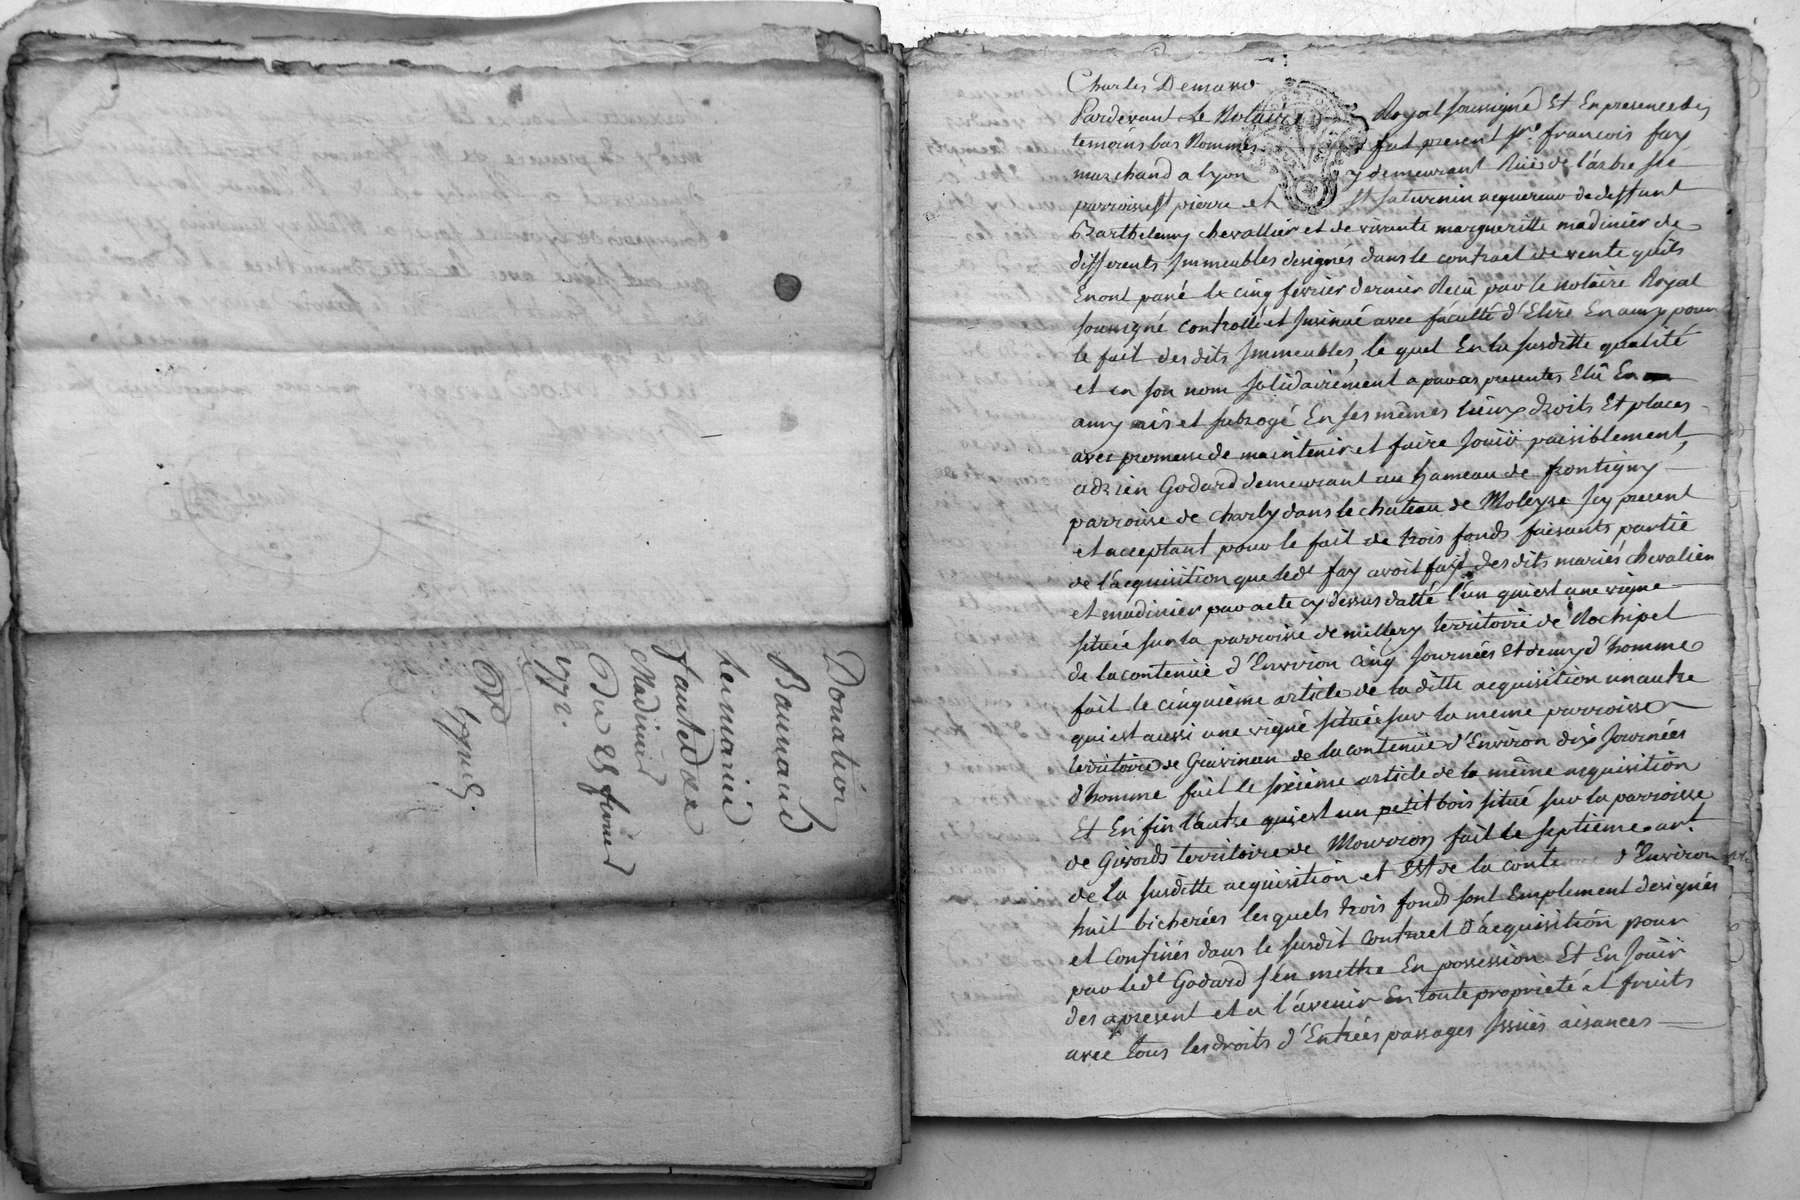 Donation
Baunaud
Lunmarini
fautedxe
Madinier
Du 25 fevrier
1772.
Expé
Charles Demard
Pardevant Le Notaire Royal soussigné Et En presence des
temoins bas Nommés fut present sr. francois fay
marchand a lyon y demeurant Rüe de l'arbre sec
parroisse st pierre et st saturnin acquereur de deffunt
Barthelemy chevallier et de vivante margueritte madinier de
differents Immeubles designés dans le contract de vente quils
En ont passé le cinq fevrier dernier Recû par le notaire Royal
soussigné controllé et Insinué avec faculté d'Elire En amy pour
le fait des dits Immeubles, le quel En la susditte qualité
et en son nom solidairement a par ces presentes Elû En
amy mis et subrogé En ses mêmes lieux droits Et places
avec promesse de maintenir et faire Joüir paisiblement,
adrien Godard demeurant au hameau de frontigny
parroisse de charly dans le chateau de Moleyse Icy present
et acceptant pour le fait de trois fonds faisants partie
de l'acquisition que led fay avoit fait des dits mariés chevalier
et madinier par acte cy dessus datté l'un qui est une vigne
située sur la parroisse de millery territoire de Rochipel
de la contenüe d'Environ cinq Journées et demy d'homme
fait le cinquième article de la ditte acquisition un autre
qui est aussi une vigne située sur la meme parroisse
territoire de Gravinan de la contenüe d'Environ dix Journées
d'homme fait le sixième article de la même acquisition
Et Enfin l'autre qui est un petit bois situé sur la parroisse
de Givords territoire de Mourron fait le septième art.
de la susditte acquisition et Est de la conte d'Environ
huit bicherées lesquels trois fonds sont Emplement designés
et confinés dans le susdit contract d'acquisition pour
par led Godard s'en mettre En possession Et En Joüir
des apresent et a l'avenir En toute proprieté et fruits
avec tous les droits d'Entrées passages Issües aisances